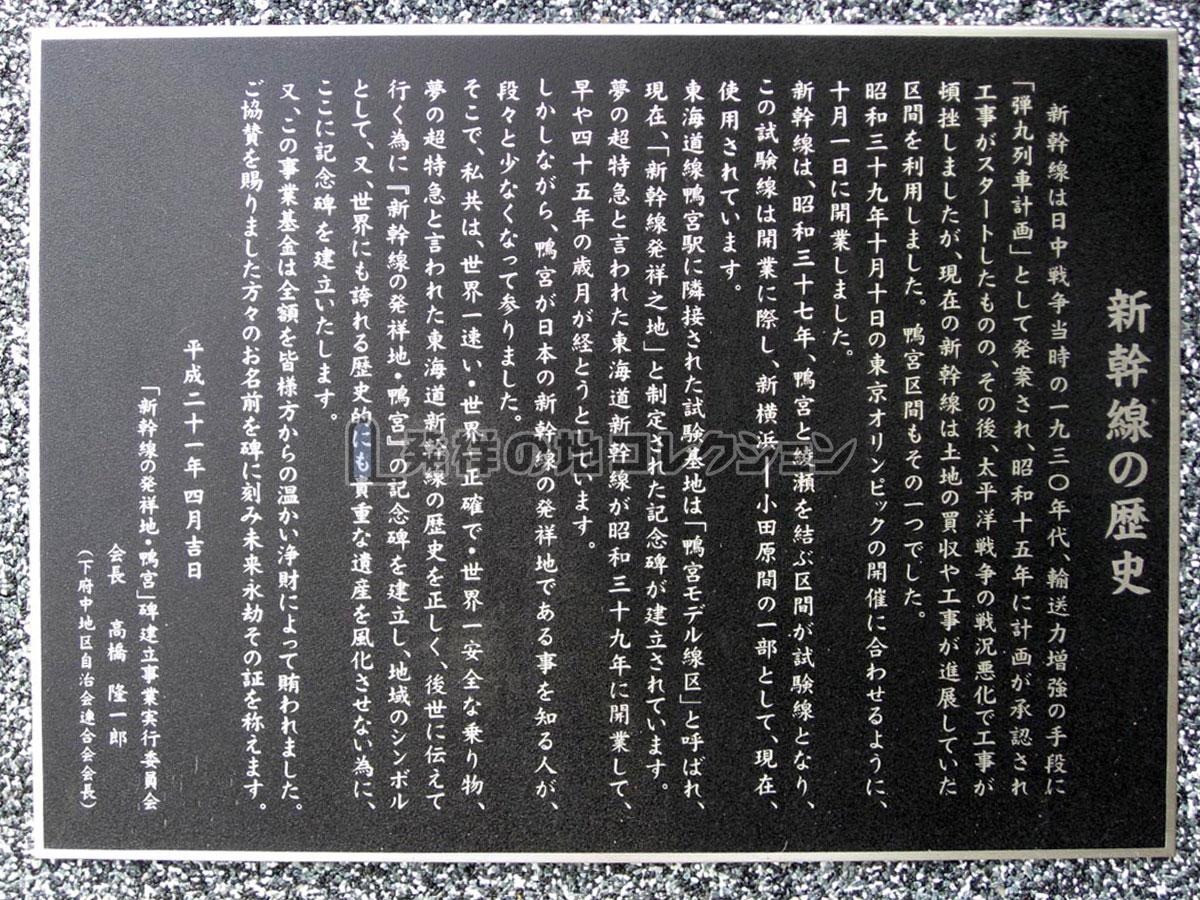 新幹線の歴史
新幹線は日中戦争当時の一九三〇年代、輸送力増強の手段に
「弾丸列車計画」として発案され、昭和十五年に計画が承認され
工事がスタートしたものの、その後、太平洋戦争の戦況悪化で工事が
頓挫しましたが、現在の新幹線は土地の買収や工事が進展していた
区間を利用しました。鴨宮区間もその一つでした。
昭和三十九年十月十日の東京オリンピックの開催に合わせるように、
十月一日に開業しました。
新幹線は、昭和三十七年、鴨宮と綾瀬を結ぶ区間が試験線となり、
この試験線は開業に際し、新横浜ー小田原間の一部として、現在、
使用されています。
東海道線鴨宮駅に隣接された試験基地は「鴨宮モデル線区」と呼ばれ、
現在、「新幹線発祥之地」と制定された記念碑が建立されています。
夢の超特急と言われた東海道新幹線が昭和三十九年に開業して、
早や四十五年の歳月が経とうとしています。
しかしながら、鴨宮が日本の新幹線の発祥地である事を知る人が、
段々と少なくなって参りました。
そこで、私共は、世界一速い・世界一正確で・世界一安全な乗り物、
夢の超特急と言われた東海道新幹線の歴史を正しく、後世に伝えて
行く為に『新幹線の発祥地・鴨宮』の記念碑を建立し、地域のシンボル
として、又、世界にも誇れる歴史的にも貴重な遺産を風化させない為に、
ここに記念碑を建立いたします。
又、この事業基金は全額を皆様方からの温かい浄財によって賄われました。
ご協賛を賜りました方々のお名前を碑に刻み未来永劫その証を称えます。
平成二十一年四月吉日
「新幹線の発祥地・鴨宮」碑建立事業実行委員会
会長 高橋 隆一郎
（下府中地区自治会連合会会長）
発祥の地コレクション